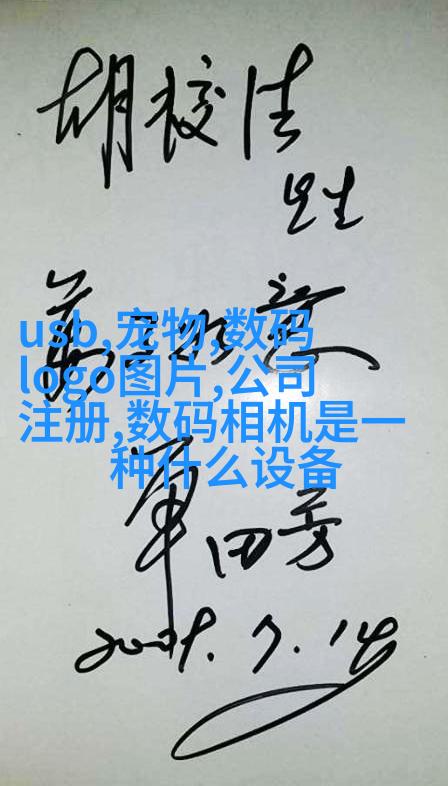 胡校
先生
萬 如意
usb,宠物,数码
logo图片,公司
注册,数码相机是一
种什么设备
单田芳
7.14